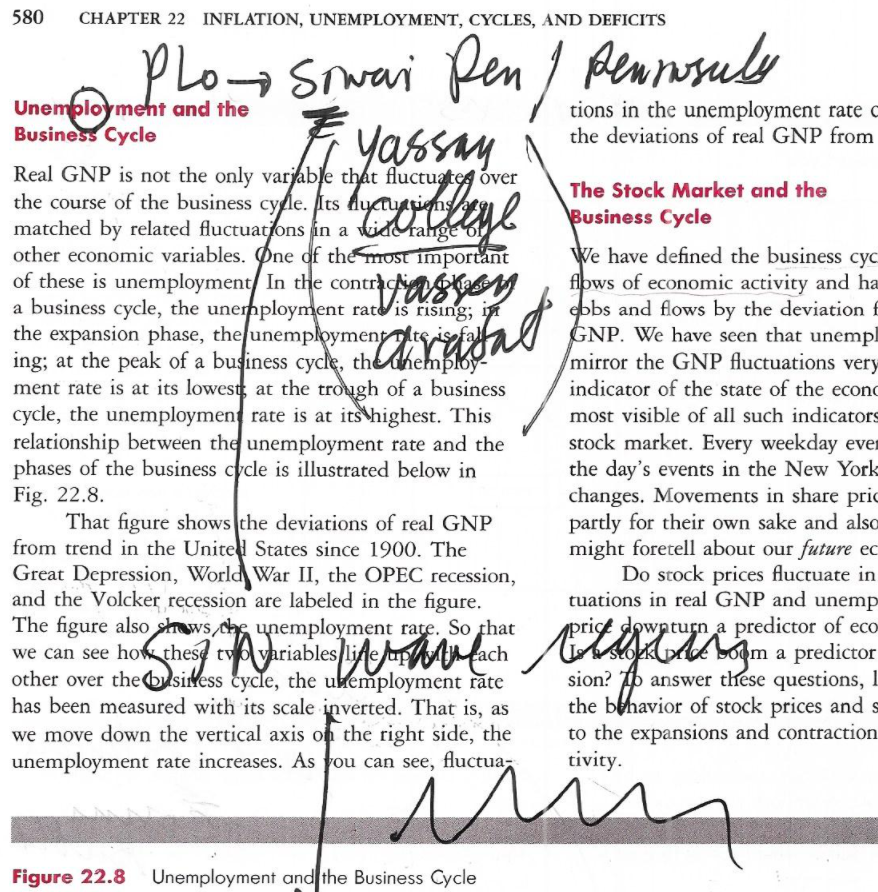 580 CHAPTER 22 INFLATION, UNEMPLOYMENT, CYCLES, AND DEFICITS
PLO → Siwai Pen / Peninsula
Unemployment and the
Business Cycle
yassay
college
vassey
arafat
Real GNP is not the only variable that fluctuates over
the course of the business cycle. Its fluctuations are
matched by related fluctuations in a wide range of
other economic variables. One of the most important
of these is unemployment. In the contraction phase of
a business cycle, the unemployment rate is rising; in
the expansion phase, the unemployment rate is fall-
ing; at the peak of a business cycle, the unemploy-
ment rate is at its lowest; at the trough of a business
cycle, the unemployment rate is at its highest. This
relationship between the unemployment rate and the
phases of the business cycle is illustrated below in
Fig. 22.8.
That figure shows the deviations of real GNP
from trend in the United States since 1900. The
Great Depression, World War II, the OPEC recession,
and the Volcker recession are labeled in the figure.
The figure also shows the unemployment rate. So that
we can see how these two variables line up with each
other over the business cycle, the unemployment rate
has been measured with its scale inverted. That is, as
we move down the vertical axis on the right side, the
unemployment rate increases. As you can see, fluctua-
Sin wave
tions in the unemployment rate c
the deviations of real GNP from
The Stock Market and the
Business Cycle
We have defined the business cyc
flows of economic activity and ha
ebbs and flows by the deviation f
GNP. We have seen that unempl
mirror the GNP fluctuations very
indicator of the state of the econo
most visible of all such indicators
stock market. Every weekday ever
the day's events in the New York
changes. Movements in share pric
partly for their own sake and also
might foretell about our future ec
Do stock prices fluctuate in
tuations in real GNP and unemp
price downturn a predictor of eco
Is a stock price boom a predictor
sion? To answer these questions, l
the behavior of stock prices and s
to the expansions and contraction
tivity.
Figure 22.8 Unemployment and the Business Cycle